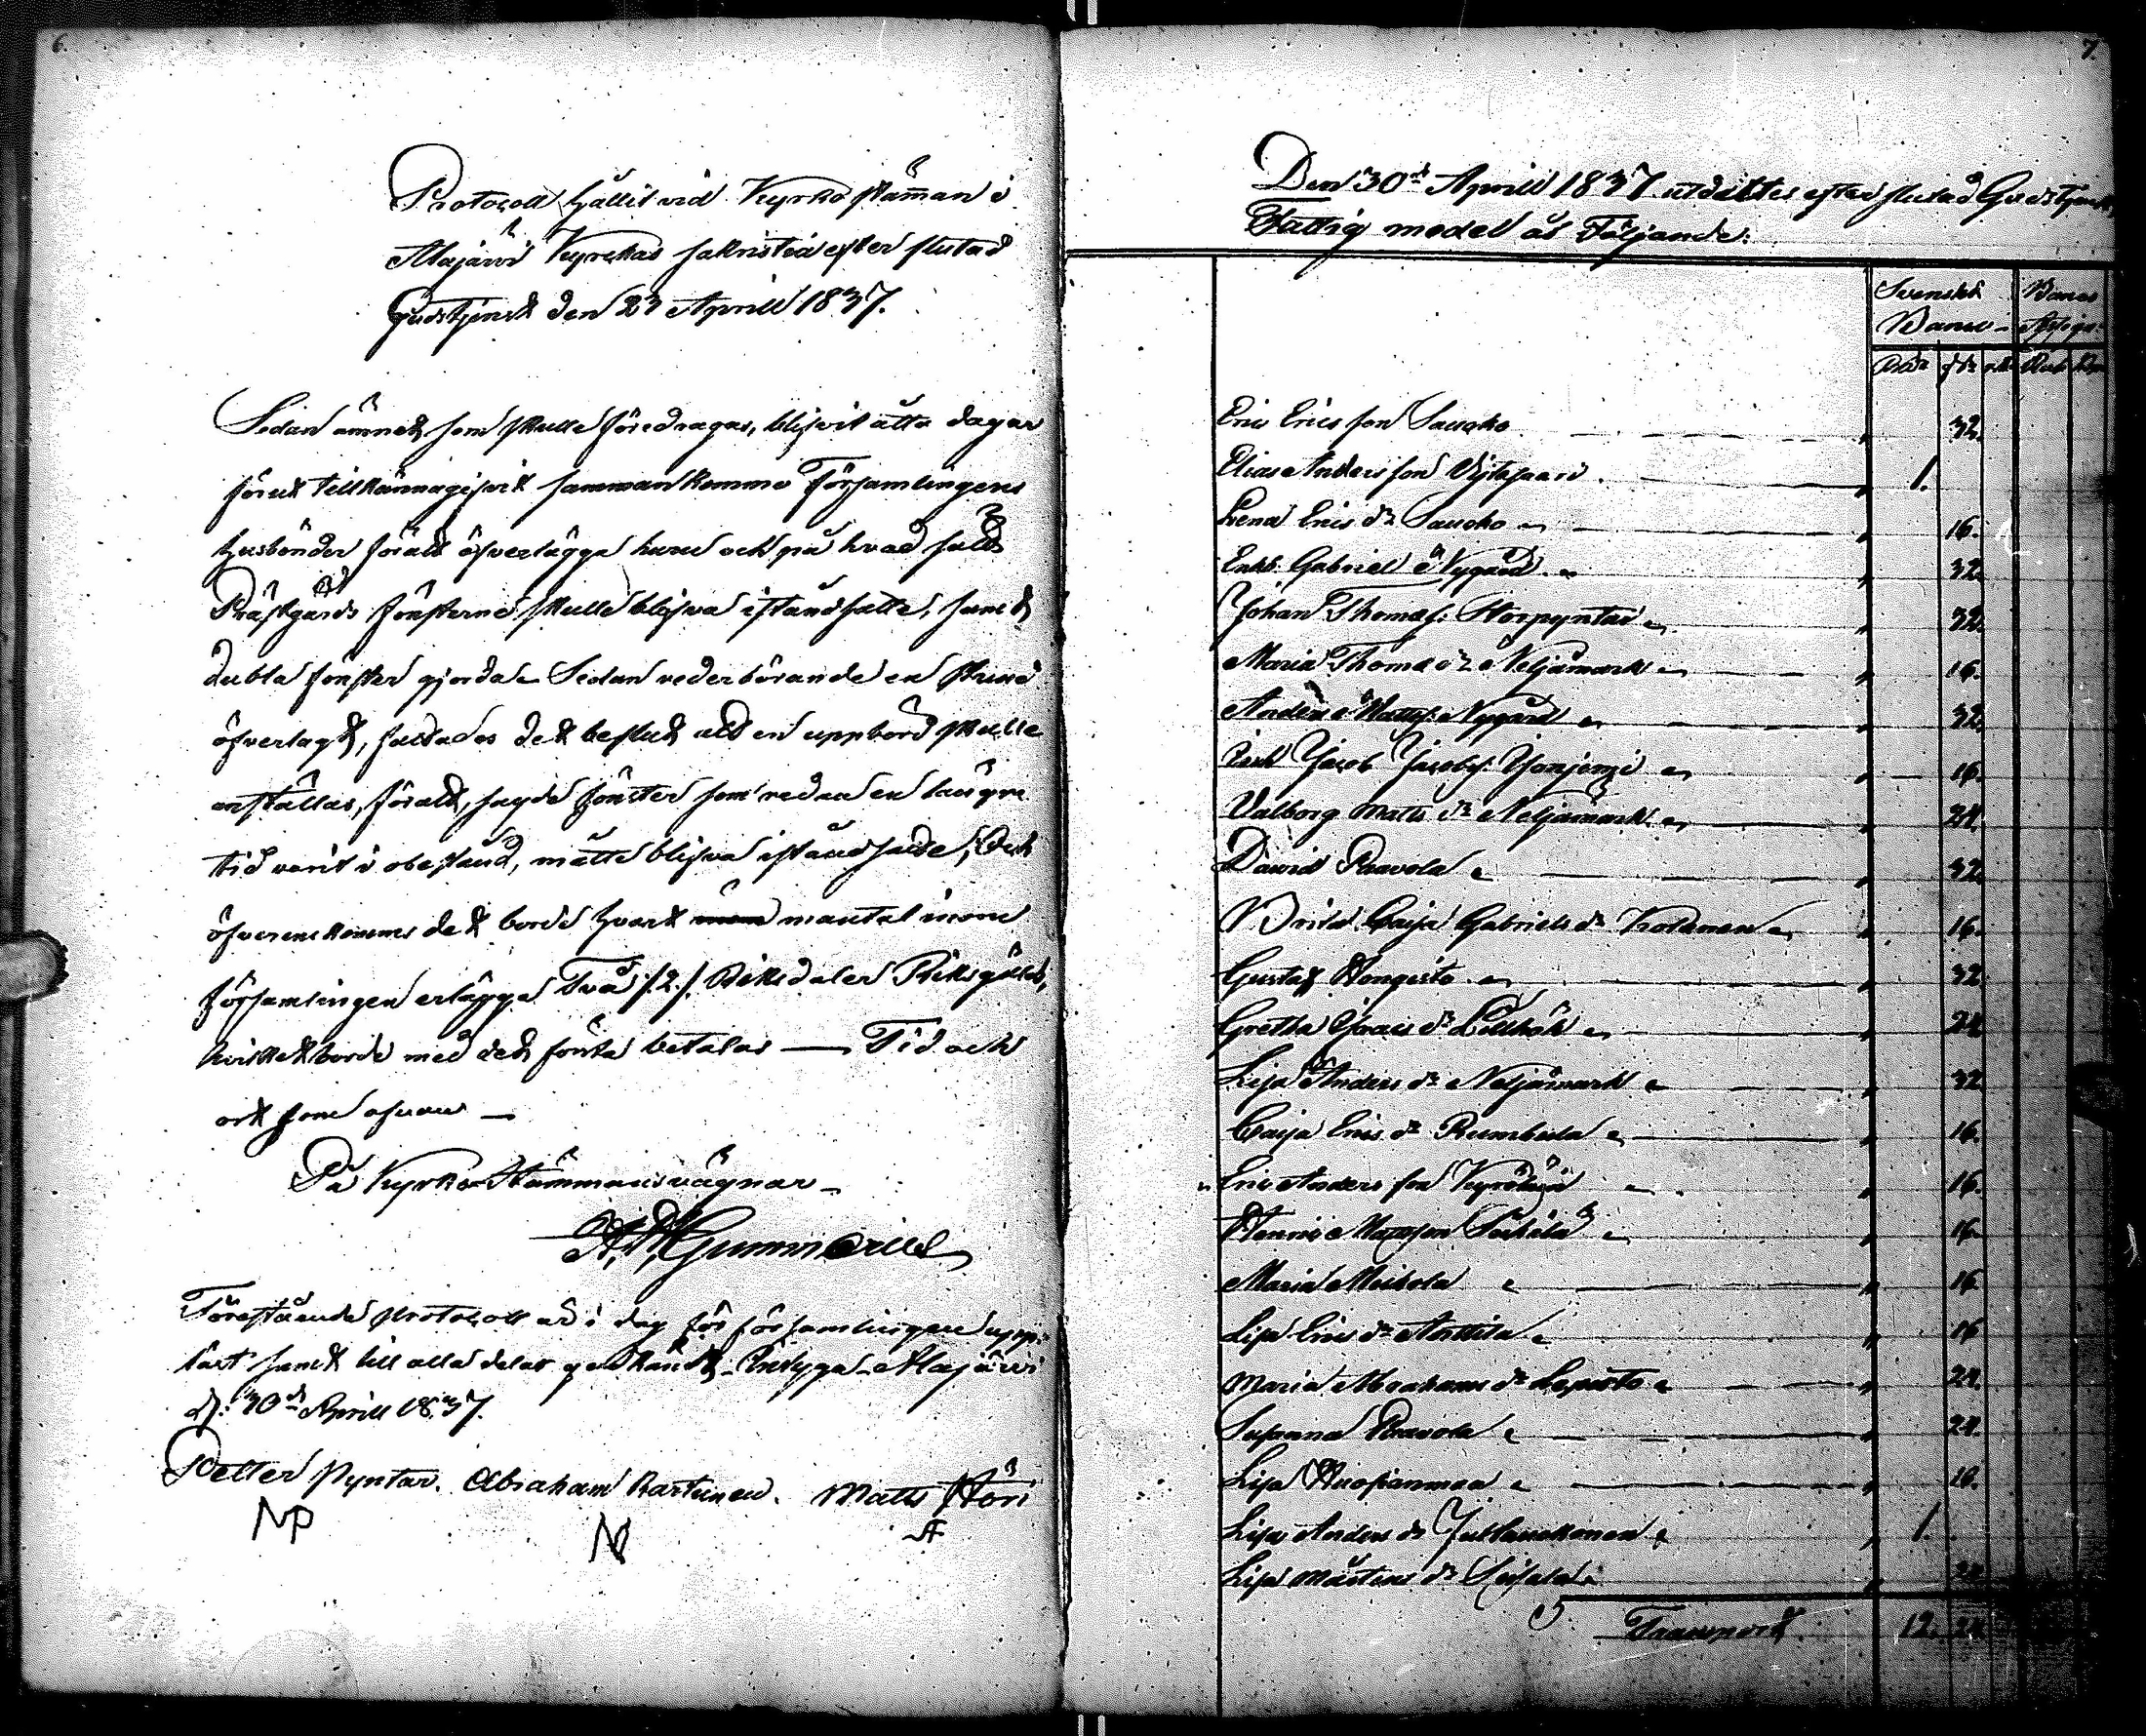 6.
Protocoll hållit vid Kyrko stämman i
Alajärvi Kyrckas sakristia efter slutad
Gudstjenst den 23 Aprill 1837.
Sedan ämnet, som skulle föredragas, blifvit åtta dagar
förut tillkännagifvit sammankommo Församlingens
husbönder föratt öfverlägga huru och på hvad sätt
Prästgårds fönsterne skulle blifva iståndsatte, samt
dubla fönster gjorda. Sedan vederbörande en stund
öfverlagt, fattades det beslut att en uppbörd skulle
anställas, föratt, sagde fönster som redan en längre
tid varit i obestånd, måtte blifva iståndsatte, Och
öfverenskommes det borde hvart mantal inom
församlingen erlägga Två /:2:/ Riksdaler Riksgälds,
hvilket borde med det första betalas — Tid och
ort som ofvan —
På Kyrko-Stämmans vägnar
Gummerus
Förestående protocoll är i dag för församlingen upp-
läst samt till alla delar godkändt, Betyga. Alajärvi
d: 30de Aprill 1837.
Petter Pyntar. Abraham Kartunen. Matts Höri
NP N
7.
Den 30de Aprill 1837 utdeltes efter slutad Gudstjenst,
Fattig medel åt Följande:
Svenskt Banco
Banco Assign:
Rdr sk rst Rub Kop
Eric Ericsson Saucko 32.
Elias Andersson Vijtasaari 1.
Lena Erics dr Saucko 16.
Enkl. Gabriel Nygård 32.
Johan Thomas. Storpyntar 32.
Maria Thomæ dr Neljämark 16.
Anders Matts. Nygård 32.
Jacob Jacobs. 16.
Valborg Matts dr Neljämark 24.
David Paavola 32.
Brita Caisa Gabriels dr Koldanen 16.
Gustaf Hongisto 32
Gretha Isaacs dr Lillhök 24
Lisa Anders dr Neljämark 32
Caisa Erics dr Rumbula 16.
Eric Andersson 16.
Hennric Mattsson 16.
Maria Meihola 16
Lisa Erics dr Anttila 16
Maria Abrahams dr Lepistö 24.
Susanna Paavola 24.
Lisa Kuoslanmaa 16.
Lisa Anders dr 1.
Lisa Mårtens dr 24
Transport 12. 24